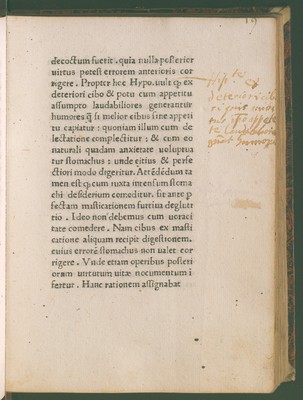 19
decoctum fuerit, quia nulla posterior
uirtus potest errorem anterioris cor
rigere. Propter hec Hypo. uult ꝙ ex
deteriori cibo & potu cum appetitu
assumpto laudabiliores generantur
humores ꝗ̃ si melior cibus sine appeti
tu capiatur: quoniam illum cum de
lectatione complectitur: & cum eo
naturali quadam anxietate uoluupta
tur stomachus: unde citius & perfe
ctiori modo digeritur. Attēdēdum ta
men est ꝙ cum iuxta intensum stoma
chi desiderium comeditur, fit ante per
fectam masticationem furtiua deglutir
tio. Ideo non debemus cum uoraci
tate comedere. Nam cibus ex masti
catione aliquam recipit digestionem,
cuius errorē stomachus non ualet cor
rigere. Vnde etiam operibus posteri
orum uirtutum uitæ nocumentum i
fertur. Hanc rationem assignabat
ex
deteriori cibo